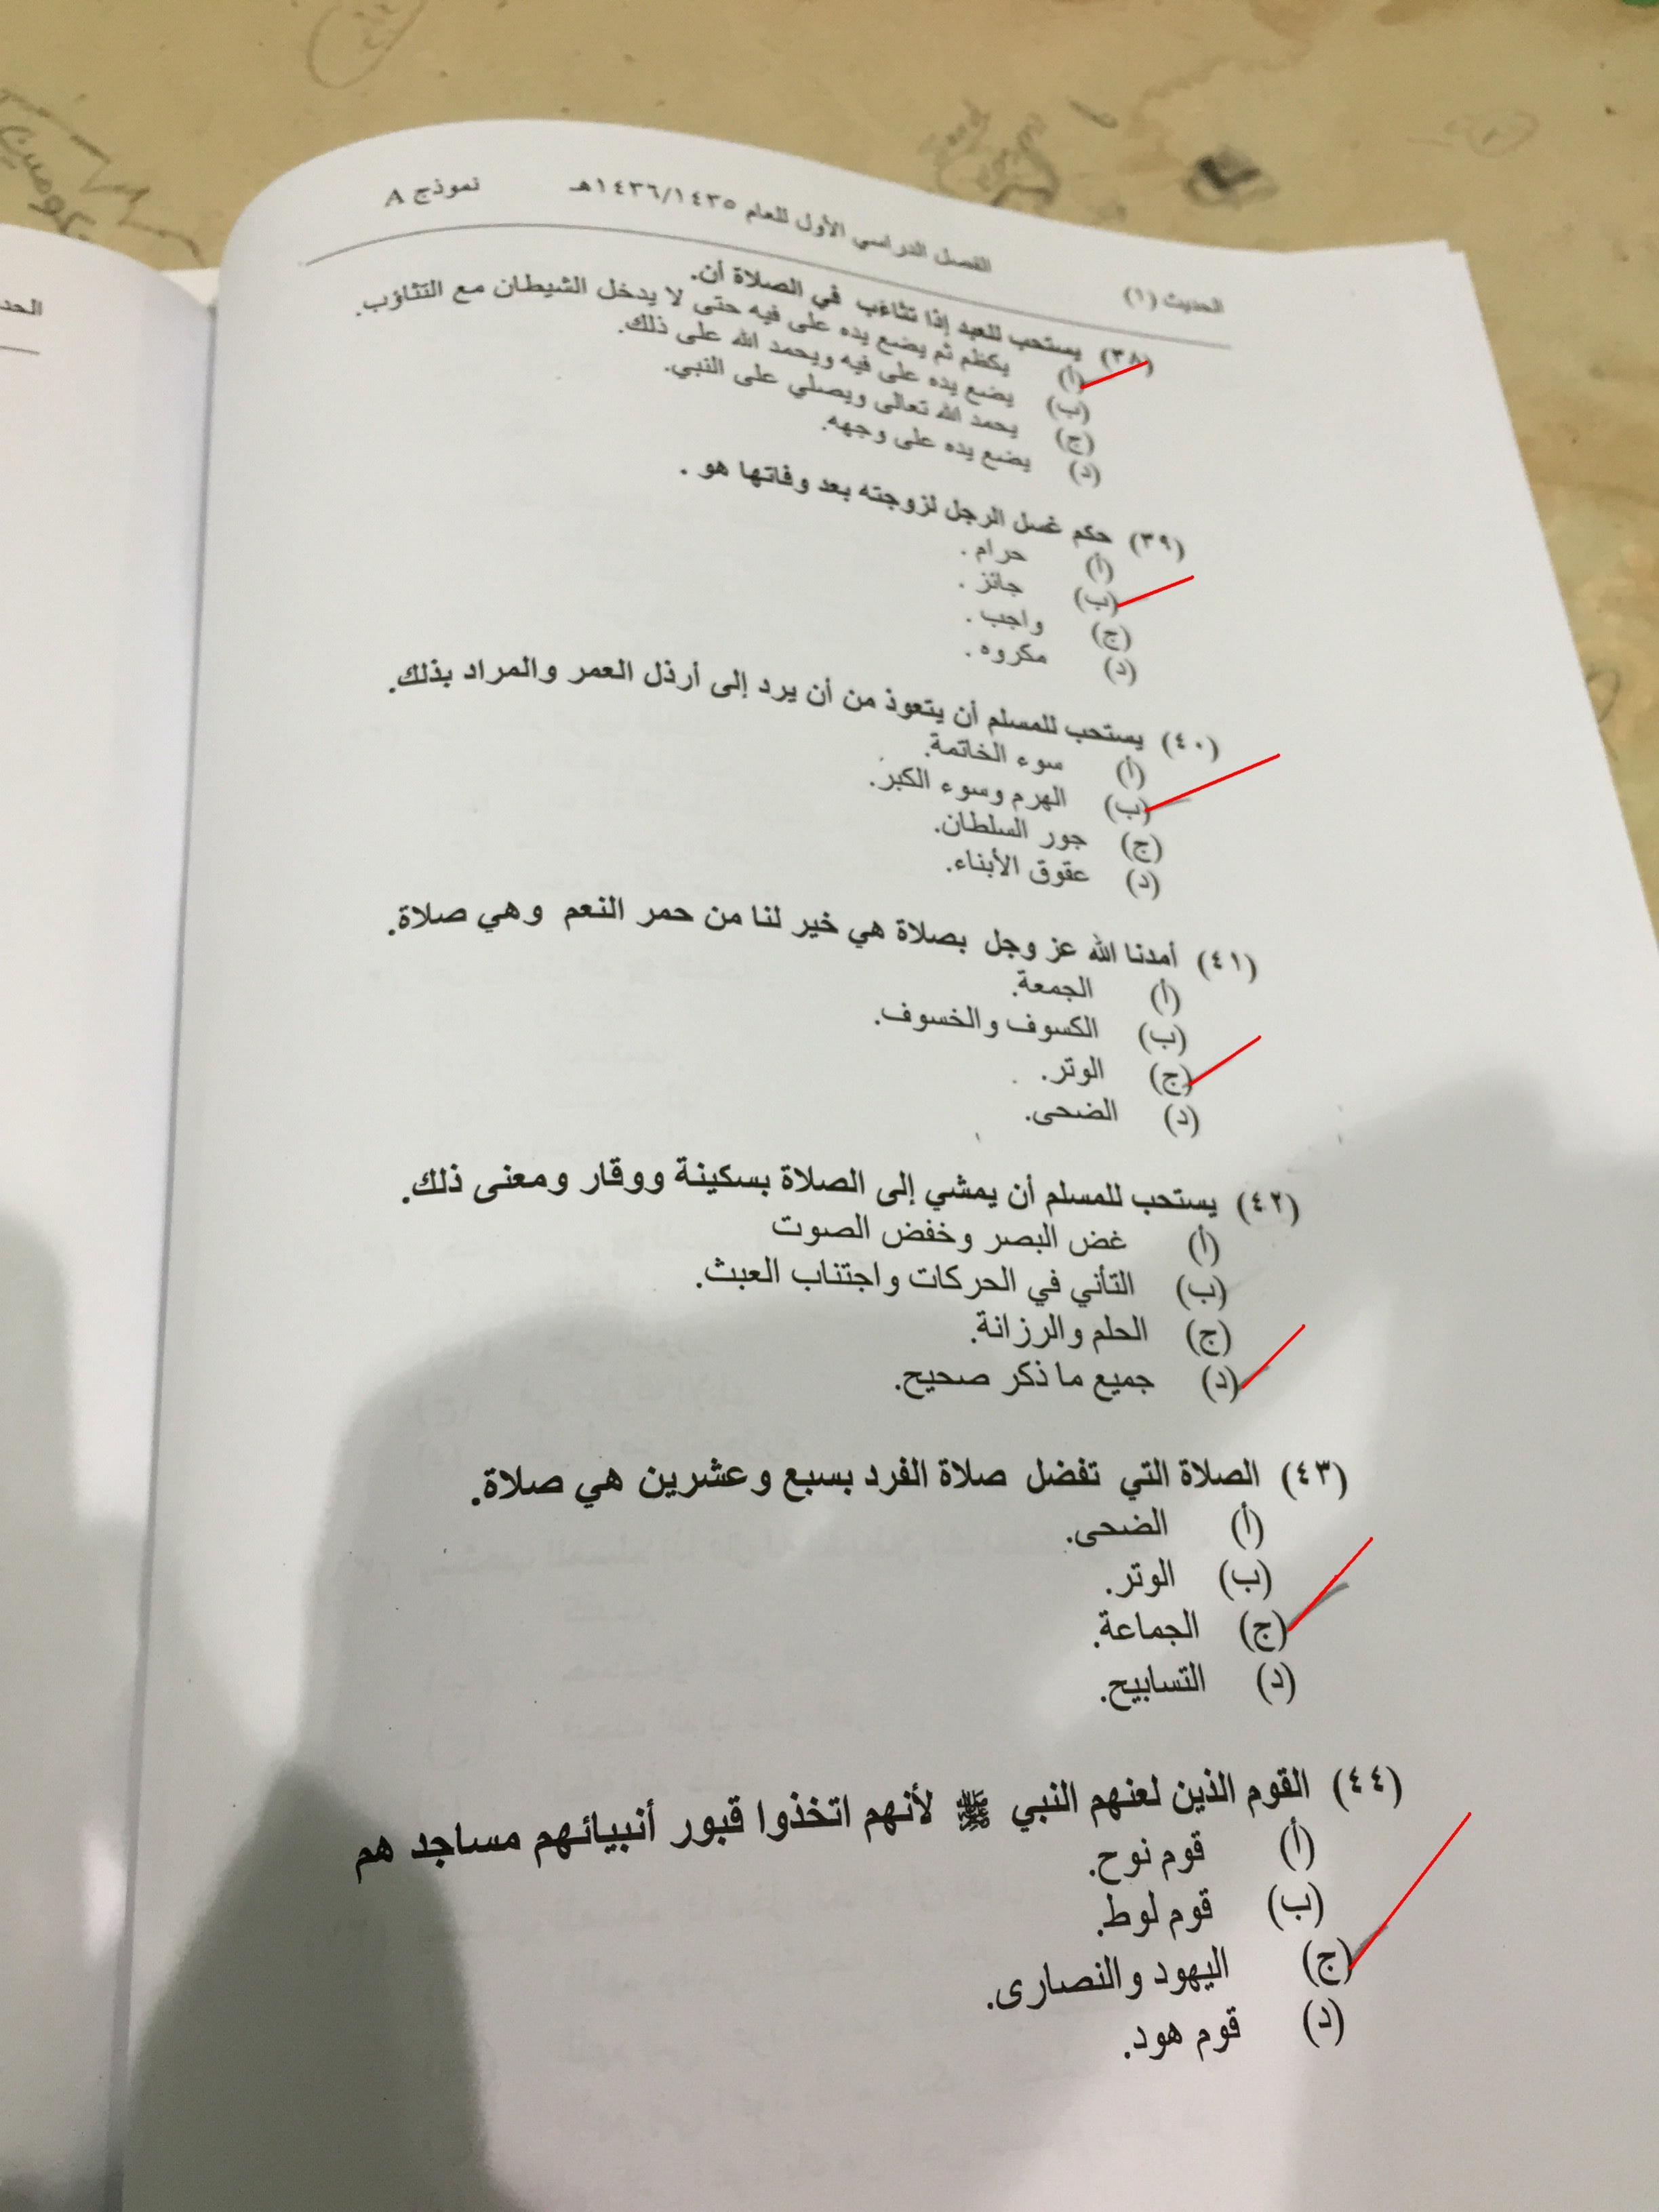 الحديث (١) الفصل الدراسي الأول للعام ١٤٣٦/١٤٣٥هـ نموذج ٨
(٣٨) يستحب للعبد إذا تثاءب في الصلاة أن.
(أ) يكظم ثم يضع يده على فيه حتى لا يدخل الشيطان مع التثاؤب.
(ب) يضع يده على فيه ويحمد الله على ذلك.
(ج) يحمد الله تعالى ويصلي على النبي.
(د) يضع يده على وجهه.
(٣٩) حكم غسل الرجل لزوجته بعد وفاتها هو .
(أ) حرام .
(ب) جائز .
(ج) واجب .
(د) مكروه .
(٤٠) يستحب للمسلم أن يتعوذ من أن يرد إلى أرذل العمر والمراد بذلك.
(أ) سوء الخاتمة.
(ب) الهرم وسوء الكبر.
(ج) جور السلطان.
(د) عقوق الأبناء.
(٤١) أمدنا الله عز وجل بصلاة هي خير لنا من حمر النعم وهي صلاة.
(أ) الجمعة.
(ب) الكسوف والخسوف.
(ج) الوتر.
(د) الضحى.
(٤٢) يستحب للمسلم أن يمشي إلى الصلاة بسكينة ووقار ومعنى ذلك.
(أ) غض البصر وخفض الصوت
(ب) التأني في الحركات واجتناب العبث.
(ج) الحلم والرزانة.
(د) جميع ما ذكر صحيح.
(٤٣) الصلاة التي تفضل صلاة الفرد بسبع وعشرين هي صلاة.
(أ) الضحى.
(ب) الوتر.
(ج) الجماعة.
(د) التسابيح.
(٤٤) القوم الذين لعنهم النبي ﷺ لأنهم اتخذوا قبور أنبيائهم مساجد هم
(أ) قوم نوح.
(ب) قوم لوط.
(ج) اليهود والنصارى.
(د) قوم هود.
الحد